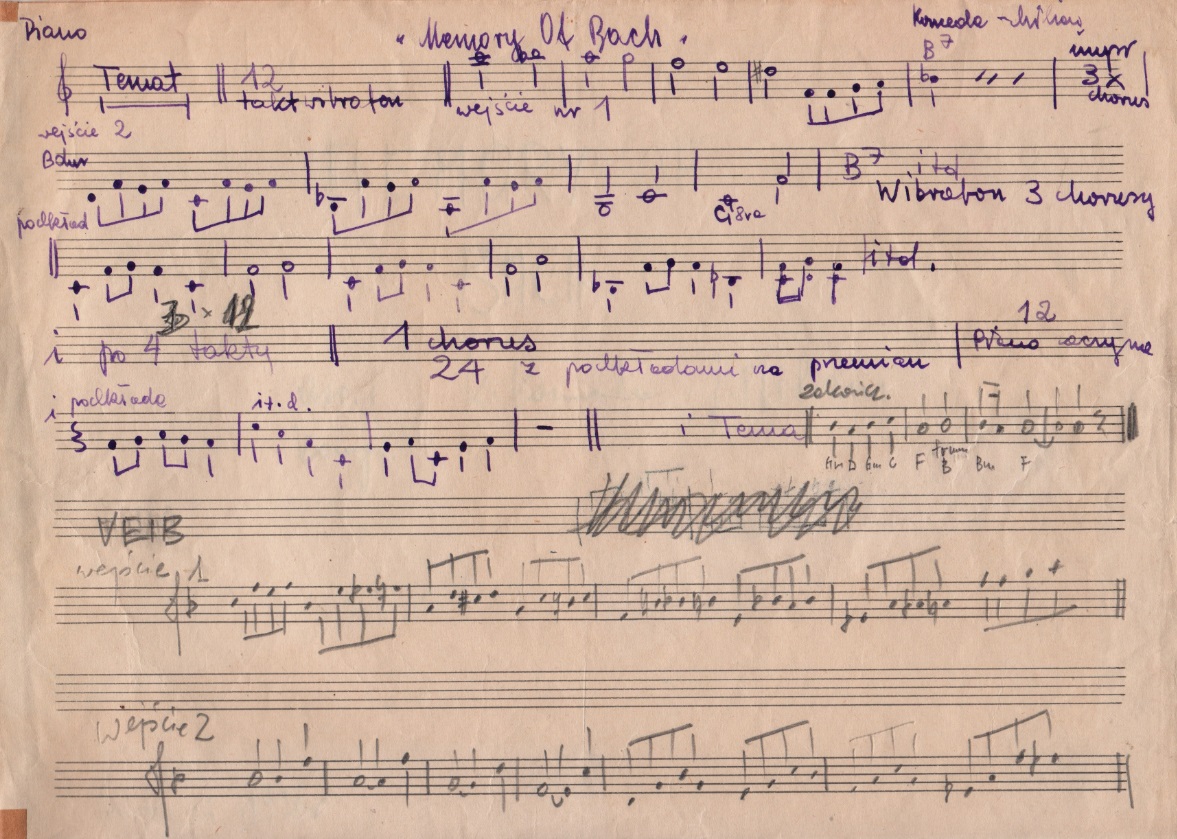 Piano
"Memory Of Bach"
Komeda
Temat
12
takt wibrafon
wejście nr 1
B7
impr
3x
chorus
wejście 2
Bdur
8va
B7 itd
Wibrafon 3 chorusy
podkład
itd.
3 x 12
i po 4 takty
1 chorus
24 z podkładami na przemian
12
Piano zaczyna
i podkłada
it.d.
i Temat
zakończ.
Am D Gm C F B Bm F
VEIB
wejście 1
wejście 2